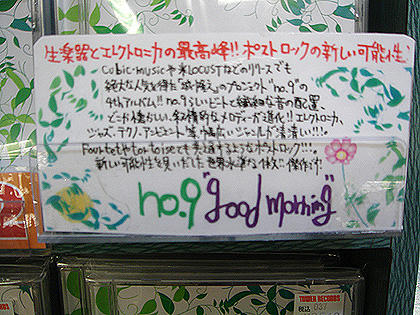 生楽器とエレクトロニカの最高峰!! ポストロックの新しい可能性
cubic-musicや米LOCUSTなどのリリースでも
絶大な人気を得た城隆之のプロジェクト"no.9"の
4thアルバム!! no.9らしいビートと繊細な音の配置、
どこか懐かしい、叙情的なメロディーが進化!! エレクトロニカ、
ジャズ、テクノ、アンビエント等、幅広いジャンルが
Fourtetやtortoiseとも
新しい可能性を見いだした世界水準な1枚!! 傑作です。
no.9 "good morning"
TOWER RECORDS
TOWER RECORDS
税込